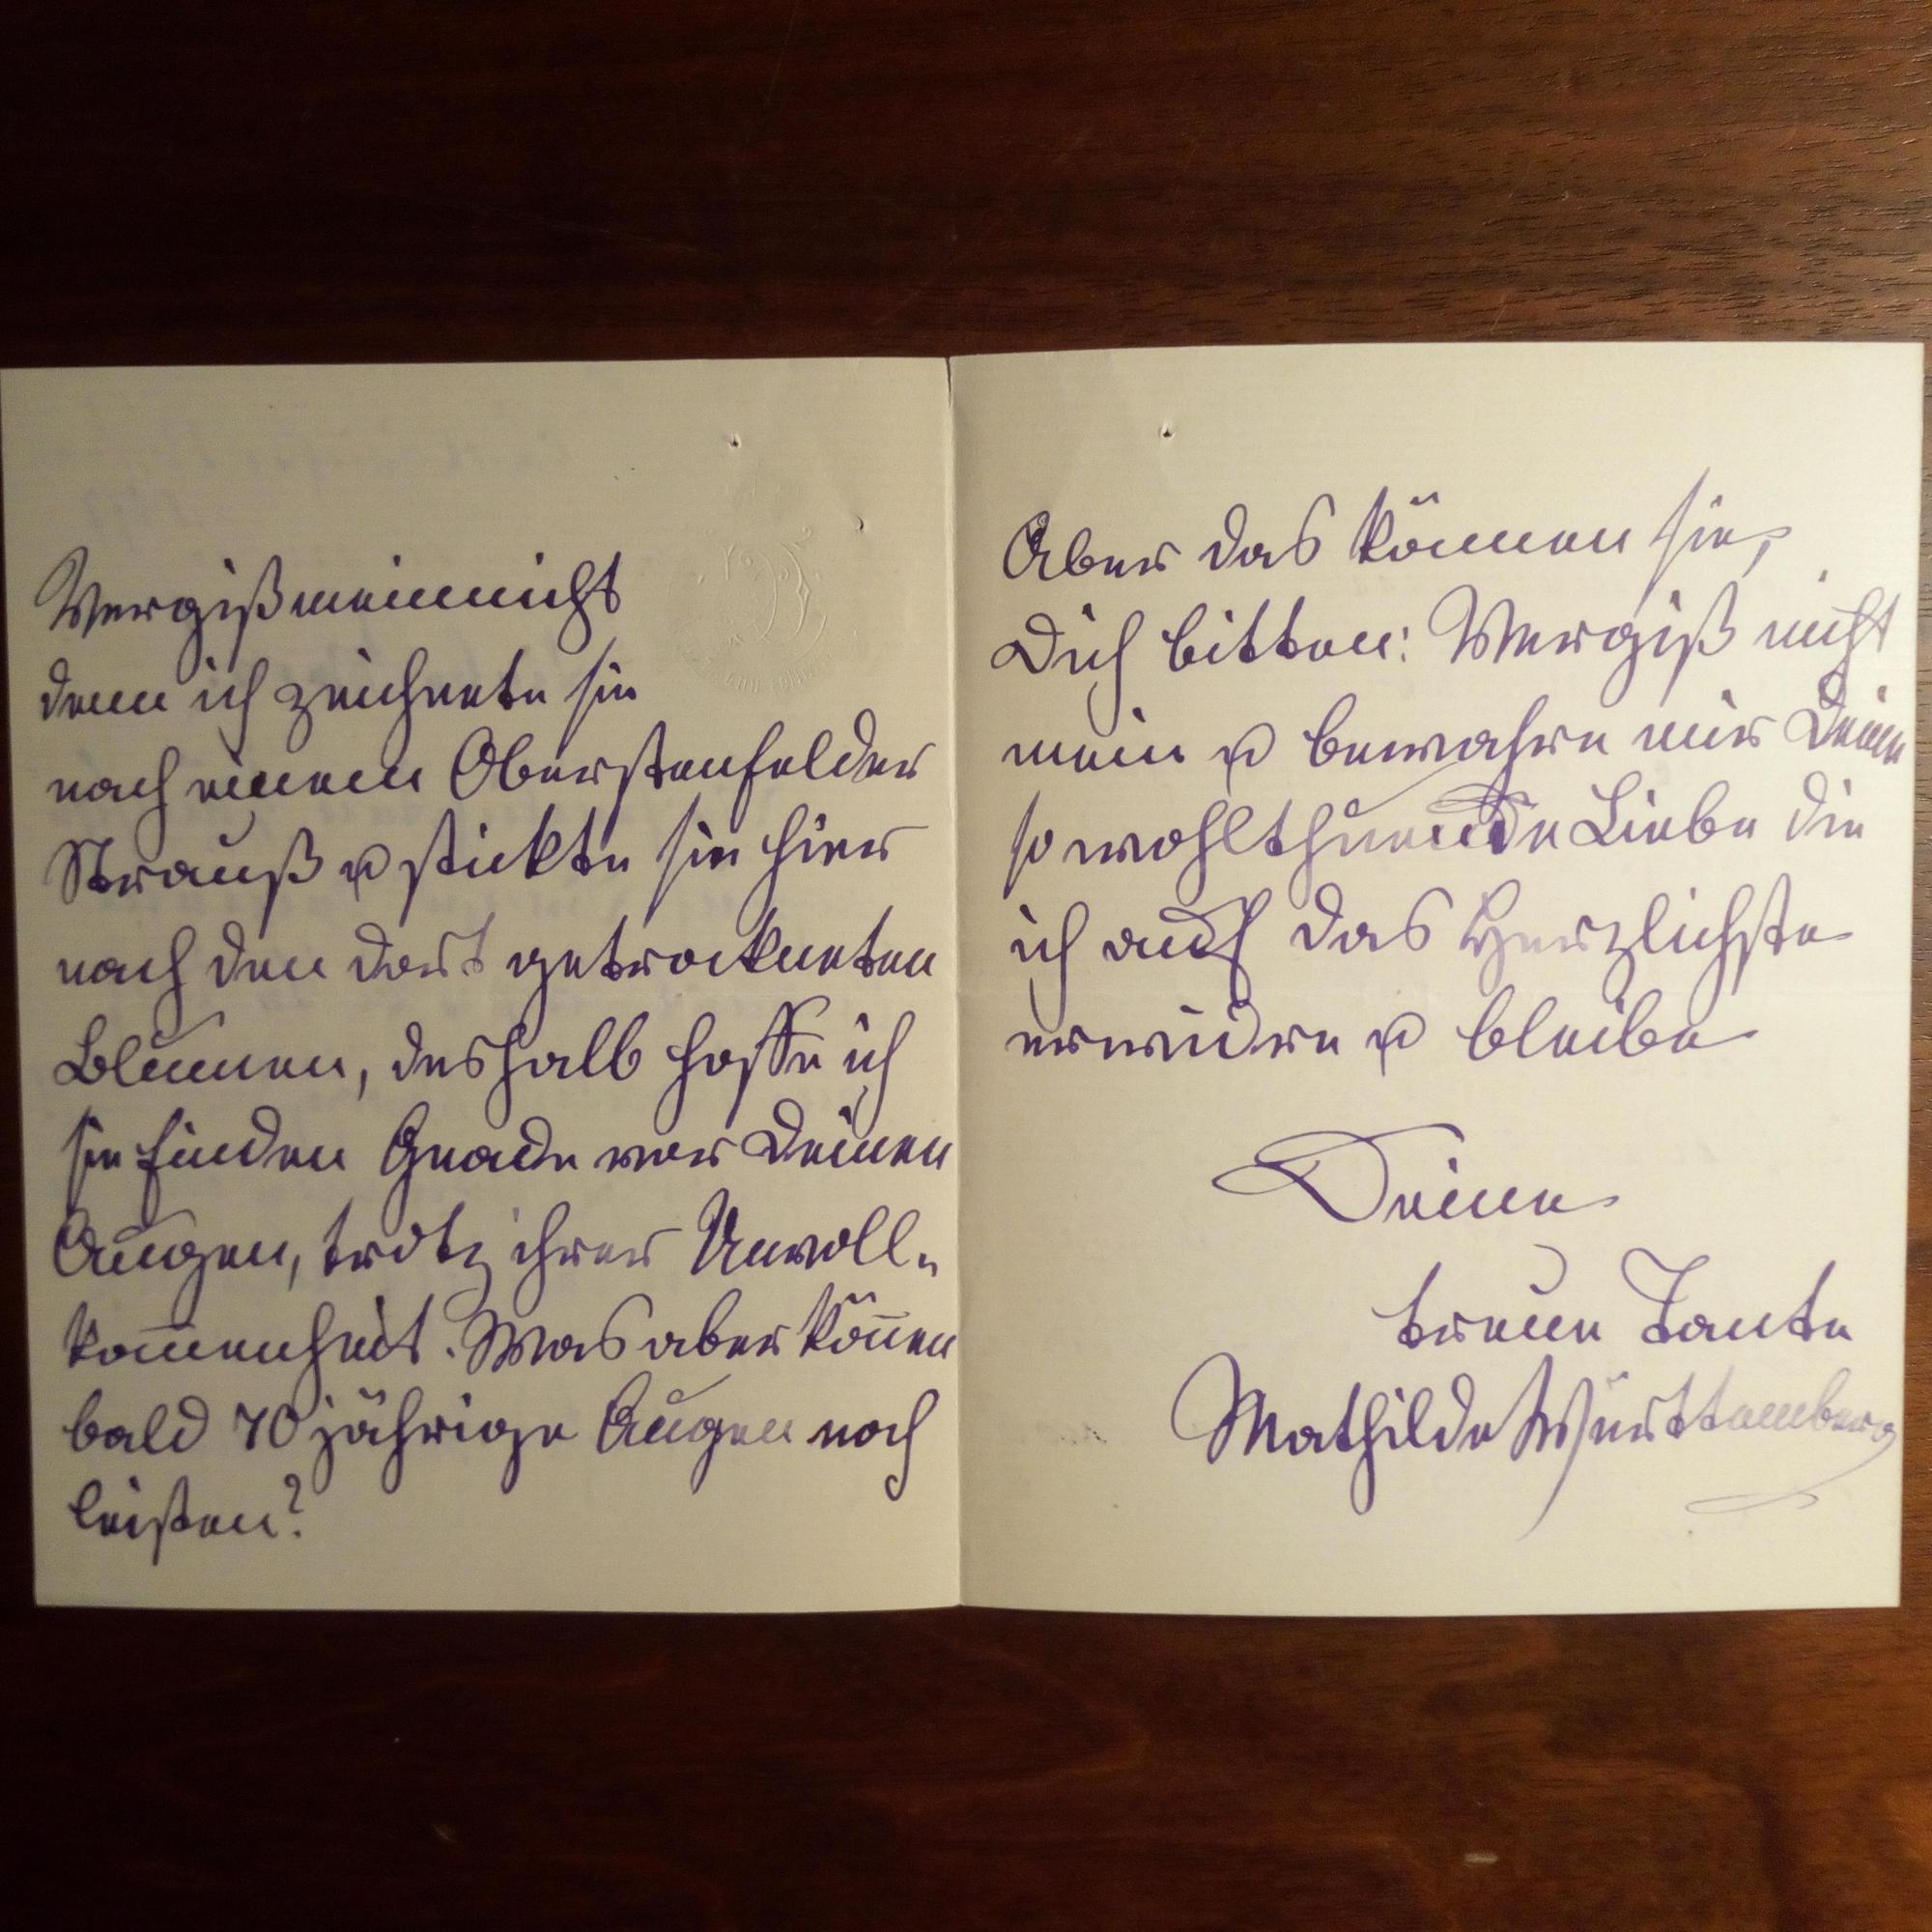 Vergißmeinnicht
denn ich zeichnete sie
nach einem Oberstenfelder
Strauß u stickte sie hier
nach den dort getrockneten
Blumen, deshalb hoffe ich
sie finden Gnade vor Deinen
Augen, trotz ihrer Unvoll-
kom̅enheit. Was aber kön̅en
bald 70jährige Augen noch
leisten?
Aber das können sie,
Dich bitten: Vergiß nicht
mein u bewahre mir Deine
so wohlthuende Liebe die
ich auch das Herzlichste
erwidre u bleibe
Deine
treue Tante
Mathilde Württemberg